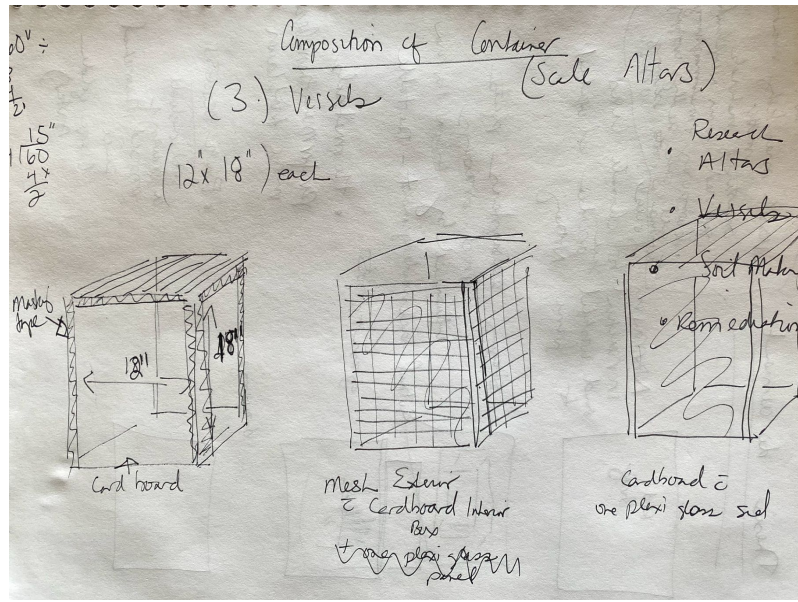 Composition of Container
(Scale Altars)
(3.) Vessels
(12" x 18") each
60" ÷
15"
60
4x
2
Research
Altars
Vessels
Soil
Remediation
Masking
tape
12"
18"
Cardboard
Mesh Exterior
c̄ Cardboard Interior
Box
+ one plexi glass
panel
Cardboard c̄
one plexi glass